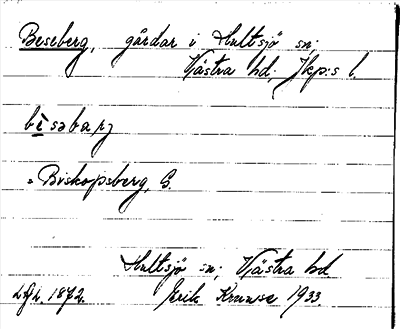 Beseberg, gårdar i Hultsjö sn;
Västra hd; Jkp:s l.
bìsəbarj
"Biskopsberg, G.
Hultsjö sn; Västra hd
1872. Erik Kruuse 1933.